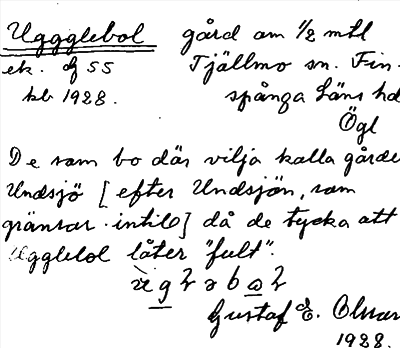 Uggglebol gård om 1/2 mtl
ek. bl 55 Tjällmo sn. Fin-
kb 1928. spånga läns hd
Ögl
De som bo där vilja kalla gården
Undsjö [efter Undsjön, som
gränsar intill] då de tycka att
Ugglebol låter "fult".
Gustaf E. Olsson
1928.